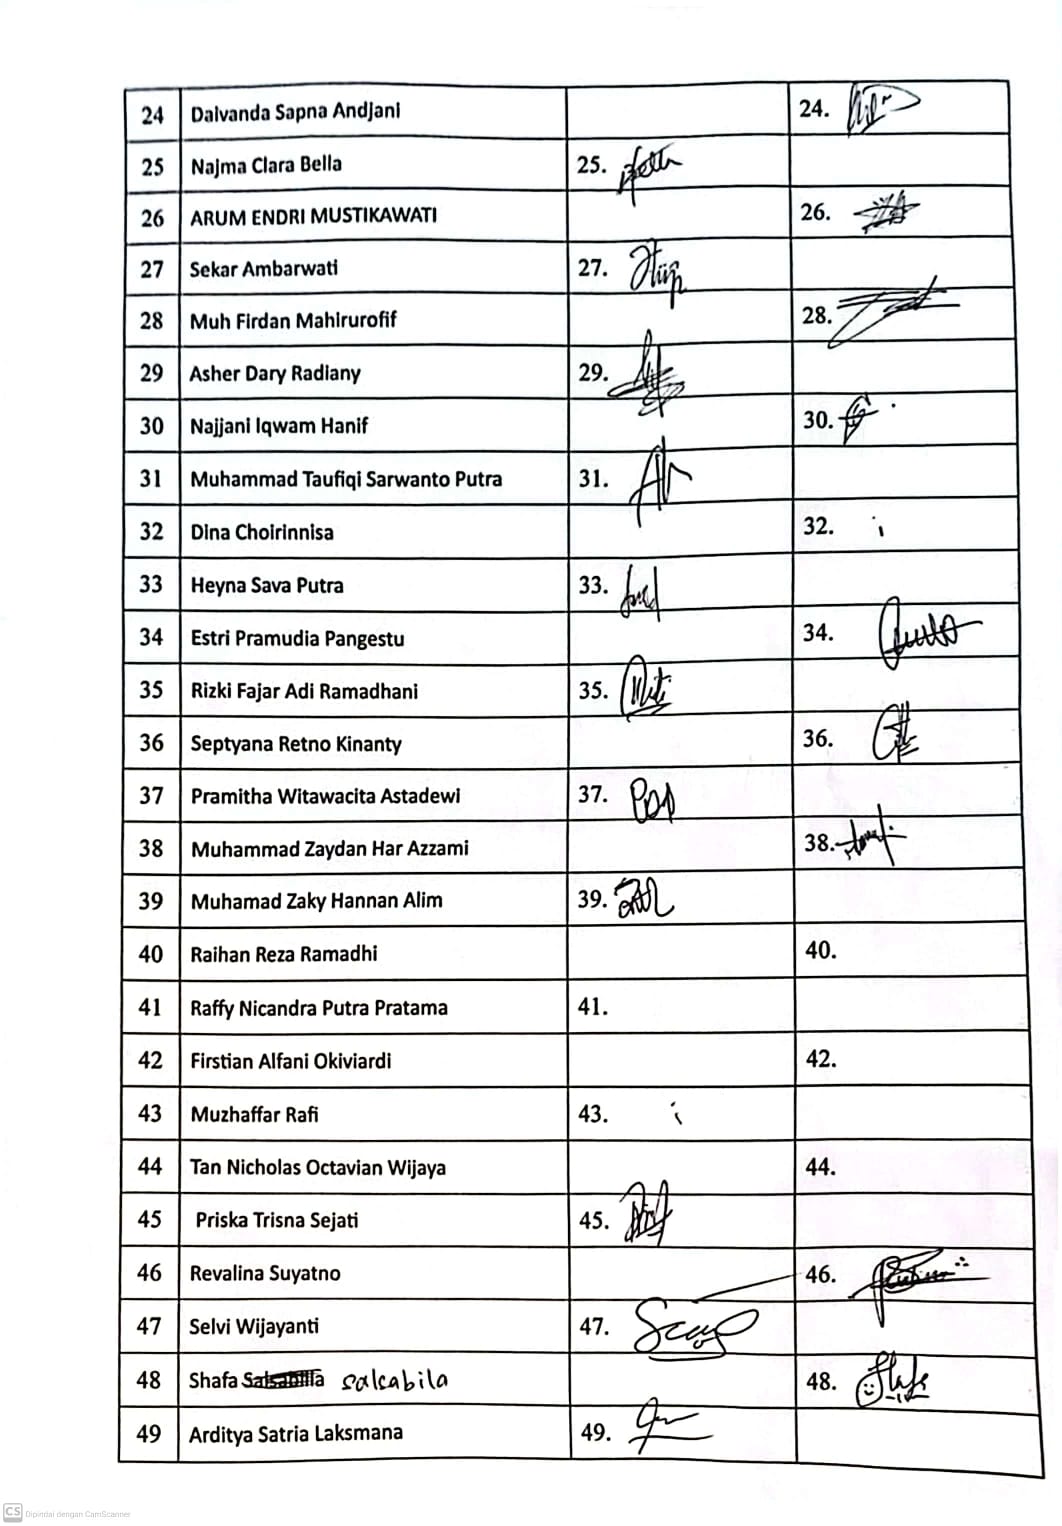 24 Dalvanda Sapna Andjani 24.
25 Najma Clara Bella 25.
26 ARUM ENDRI MUSTIKAWATI 26.
27 Sekar Ambarwati 27.
28 Muh Firdan Mahirurofif 28.
29 Asher Dary Radiany 29.
30 Najjani Iqwam Hanif 30.
31 Muhammad Taufiqi Sarwanto Putra 31.
32 Dina Choirinnisa 32. i
33 Heyna Sava Putra 33.
34 Estri Pramudia Pangestu 34.
35 Rizki Fajar Adi Ramadhani 35.
36 Septyana Retno Kinanty 36.
37 Pramitha Witawacita Astadewi 37.
38 Muhammad Zaydan Har Azzami 38.
39 Muhamad Zaky Hannan Alim 39.
40 Raihan Reza Ramadhi 40.
41 Raffy Nicandra Putra Pratama 41.
42 Firstian Alfani Okiviardi 42.
43 Muzhaffar Rafi 43. i
44 Tan Nicholas Octavian Wijaya 44.
45 Priska Trisna Sejati 45.
46 Revalina Suyatno 46.
47 Selvi Wijayanti 47.
48 Shafa salsabila 48.
49 Arditya Satria Laksmana 49.
CS Dipindai dengan CamScanner